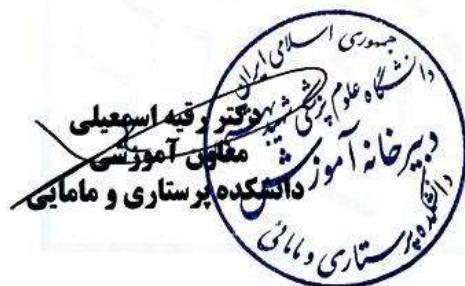 دکتر رقیه اسمعیلی
معاون آموزشی
دانشکده پرستاری و مامایی
جمهوری اسلامی ایران
دانشگاه علوم پزشکی شهید
دبیرخانه آموزش
دانشکده پرستاری و مامائی